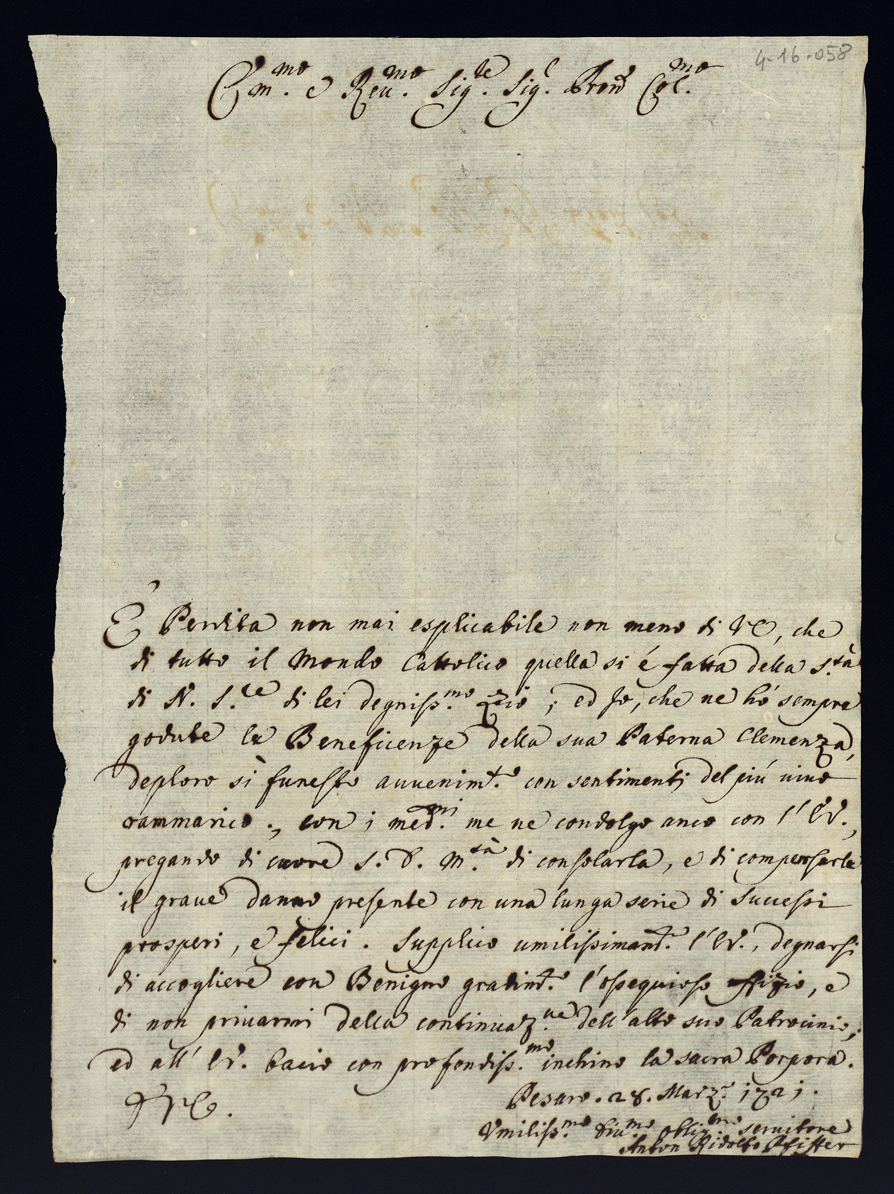 4-16-058
Em.mo e Reu.mo Sig.re Sig.r Pron Col.mo
È Perdita non mai esplicabile non meno di VE, che
di tutto il Mondo Cattolico quella si è fatta della S.tà
di N. S.re di lei degniss.mo Zio; ed Io, che ne hò sempre
godute le Beneficenze della sua Paterna Clemenza,
deploro sì funesto auuenim.to con sentimenti del più uiuo
rammarico, con i med.mi me ne condolgo anco con l'EV.,
pregando di cuore S. D. M.tà di consolarla, e di compensarle
il graue danno presente con una lunga serie di Successi
prosperi, e felici. Supplico umilissimam.te l'EV., degnarsi
di accogliere con Benigno gradim.to l'ossequioso ffizio, e
di non priuarmi della continuaz.ne dell'alto suo Patrocinio,
ed all'EV. bacio con profondiss.mo inchino la sacra Porpora.
Pesaro. 28. Marzo 1721.
Vmiliss.mo Diu.mo Obblig.mo seruitore
Anton Ridolfo Pfiffer